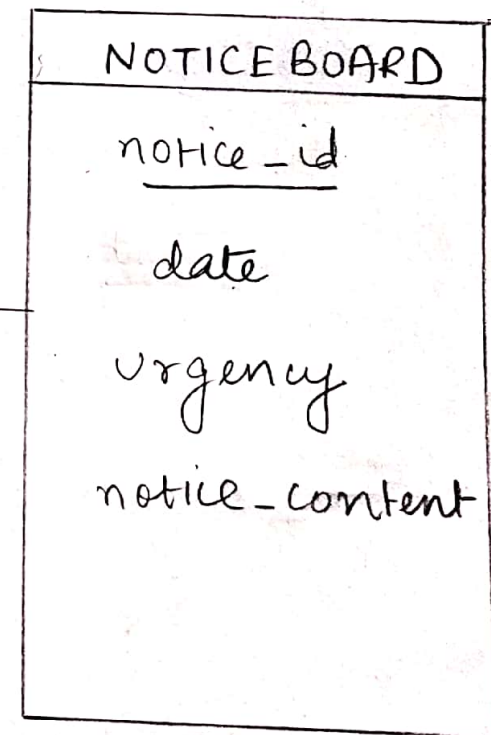 NOTICE BOARD
notice_id
date
urgency
notice_content